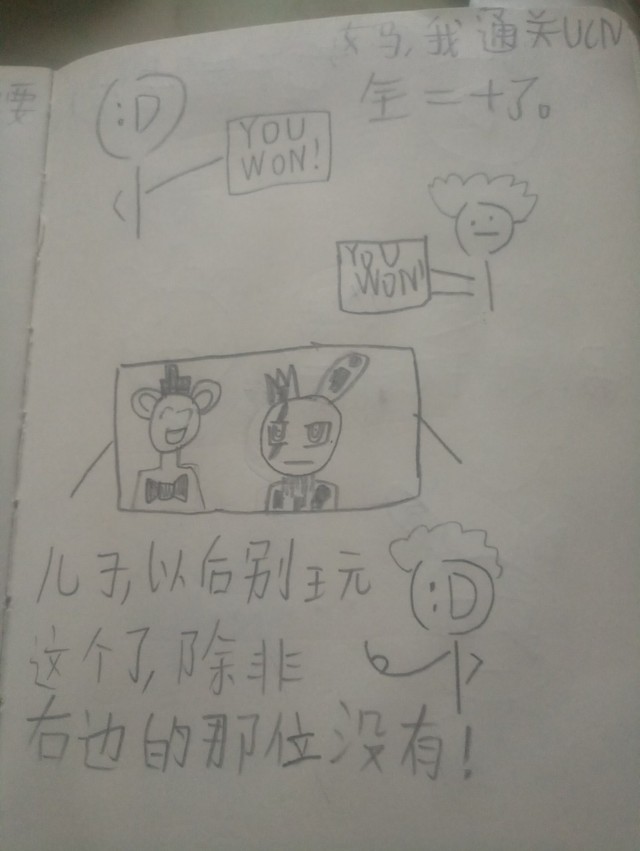 要
妈,我通关UCN
全二十了。
:D
YOU
WON!
YOU
WON!
儿子,以后别玩
:D
这个了,除非
右边的那位没有!